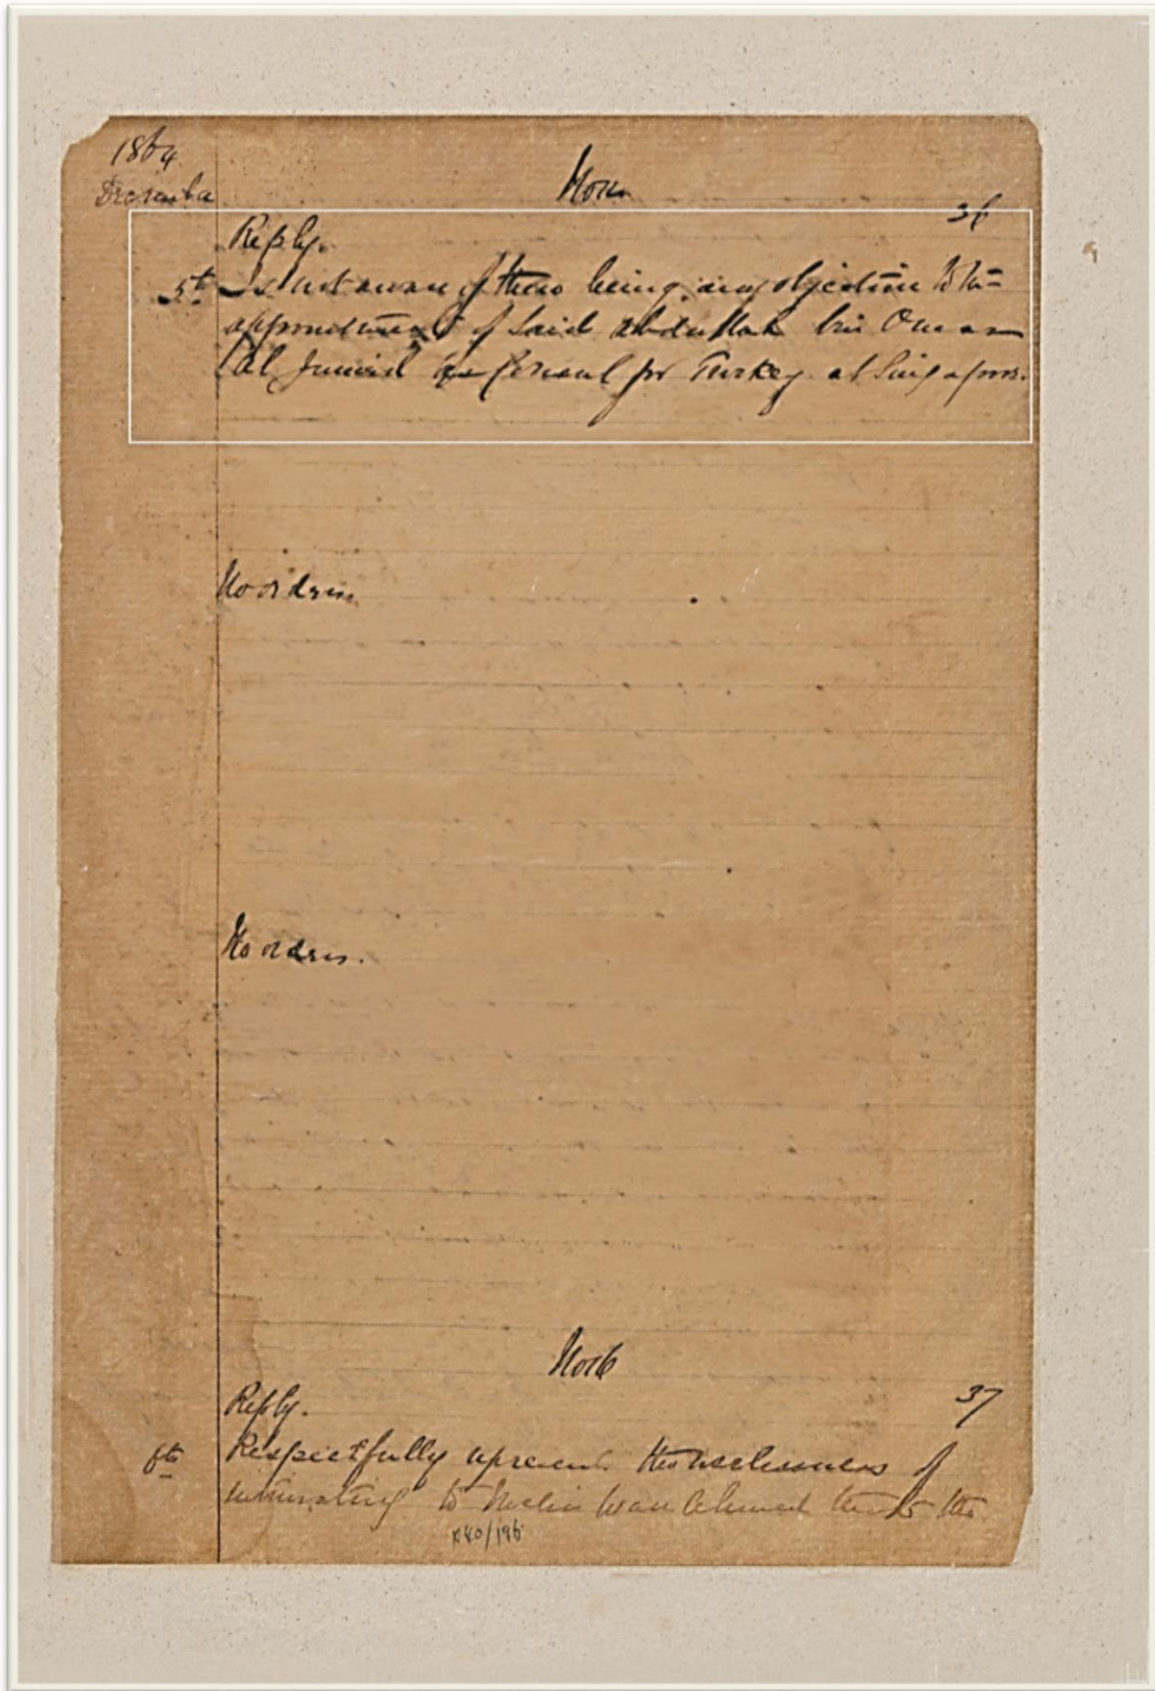 1864
December
36
Reply.
5th Is not aware of there being any objection to the
appointment of Said Abdullah bin Omar
Al Junied as Consul for Turkey at Singapore.
No orders.
No orders.
37
Reply.
6th Respectfully represent the uselessness of
to Wan Ahmed the